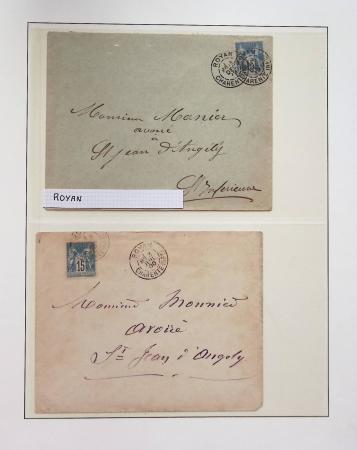 ROYAN
CHARENTE INFRE
15
Monsieur Manier
avoué
à
St Jean d'Angely
Ch Inférieure
ROYAN
15
ROYAN
CHARENTE INFRE
Monsieur Monnied
avoué
St Jean d'Angely